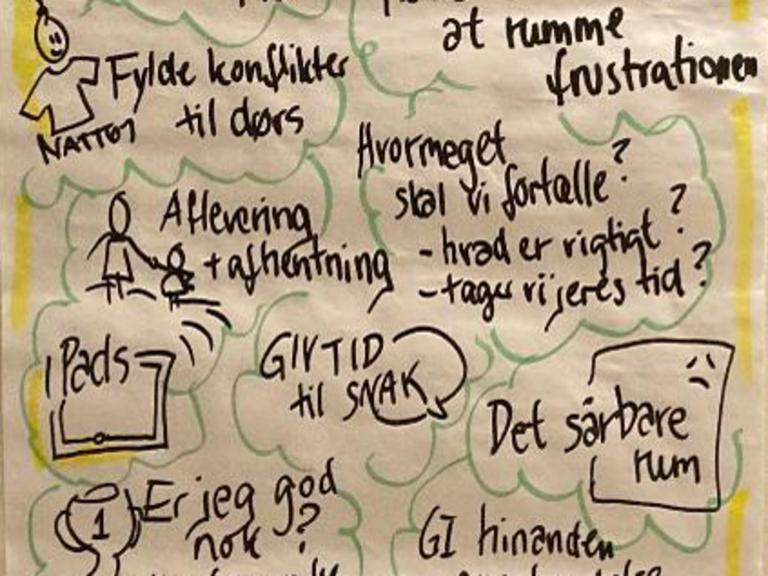 at rumme
frustrationen
Fylde konflikter
til dørs
NATTØJ
Hvormeget
skal vi fortælle?
- hvad er rigtigt?
- tager vi jeres tid?
Aflevering
+ afhentning
iPads
GIV TID
til SNAK
Det sårbare
rum
1
Er jeg god
nok?
GI hinanden